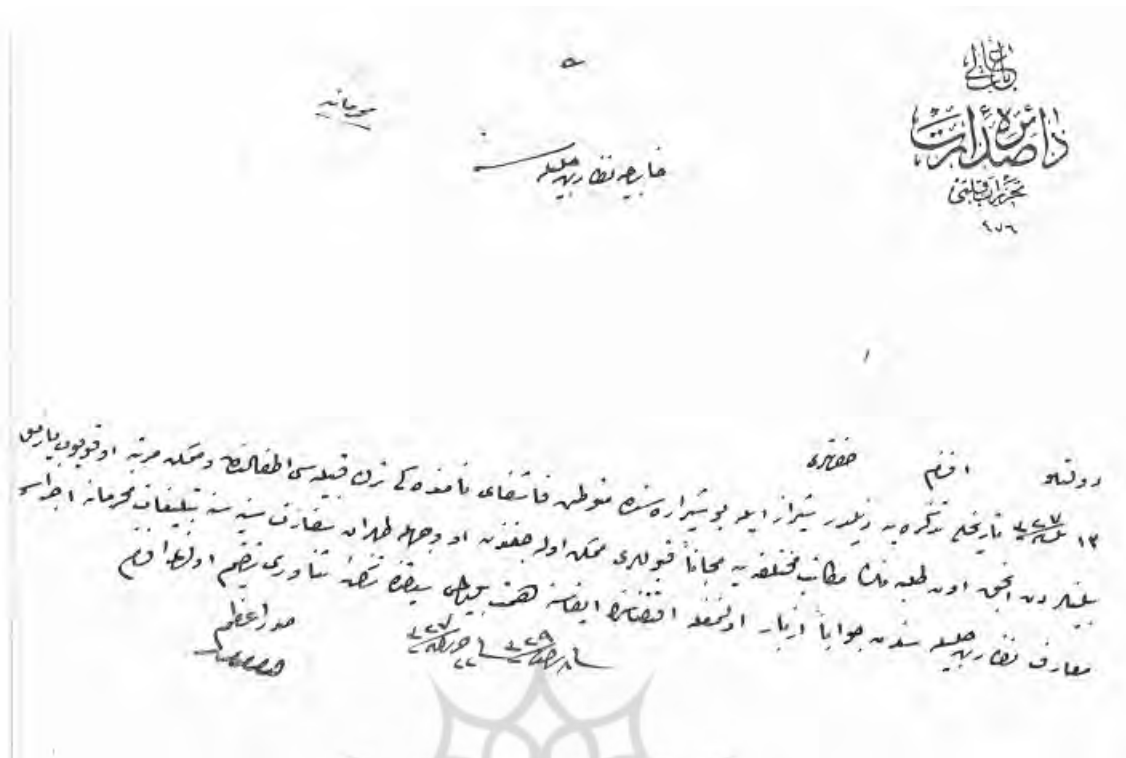 باب عالی
دائرهٔ صدارت
تحریرات قلمی
٩٧٦
محرمانه
خارجیه نظارت جلیله سنه
دولتلو افندم حضرتلری
١٣ تاریخلی تذکره یه ذیلدر شیراز ایله بوشیر اره سنده متوطن قاشقای نامنده کی ترک قبیله سی اطفالندن و ممکن مرتبه اوقویوب یازمق
بیلنلردن انجق اون طلبه نك مکاتب مختلفه یه مجاناً قبوللری ممکن اوله جغندن او وجهله طهران سفارت سنیه سنه تبلیغات محرمانه اجراسی
معارف نظارت جلیله سندن جواباً ازبار اولنمغله اقتضاسنك ایفاسنه همت سیاقنده تذکرهٔ ثناوری ترقیم اولندی افندم
صدر اعظم